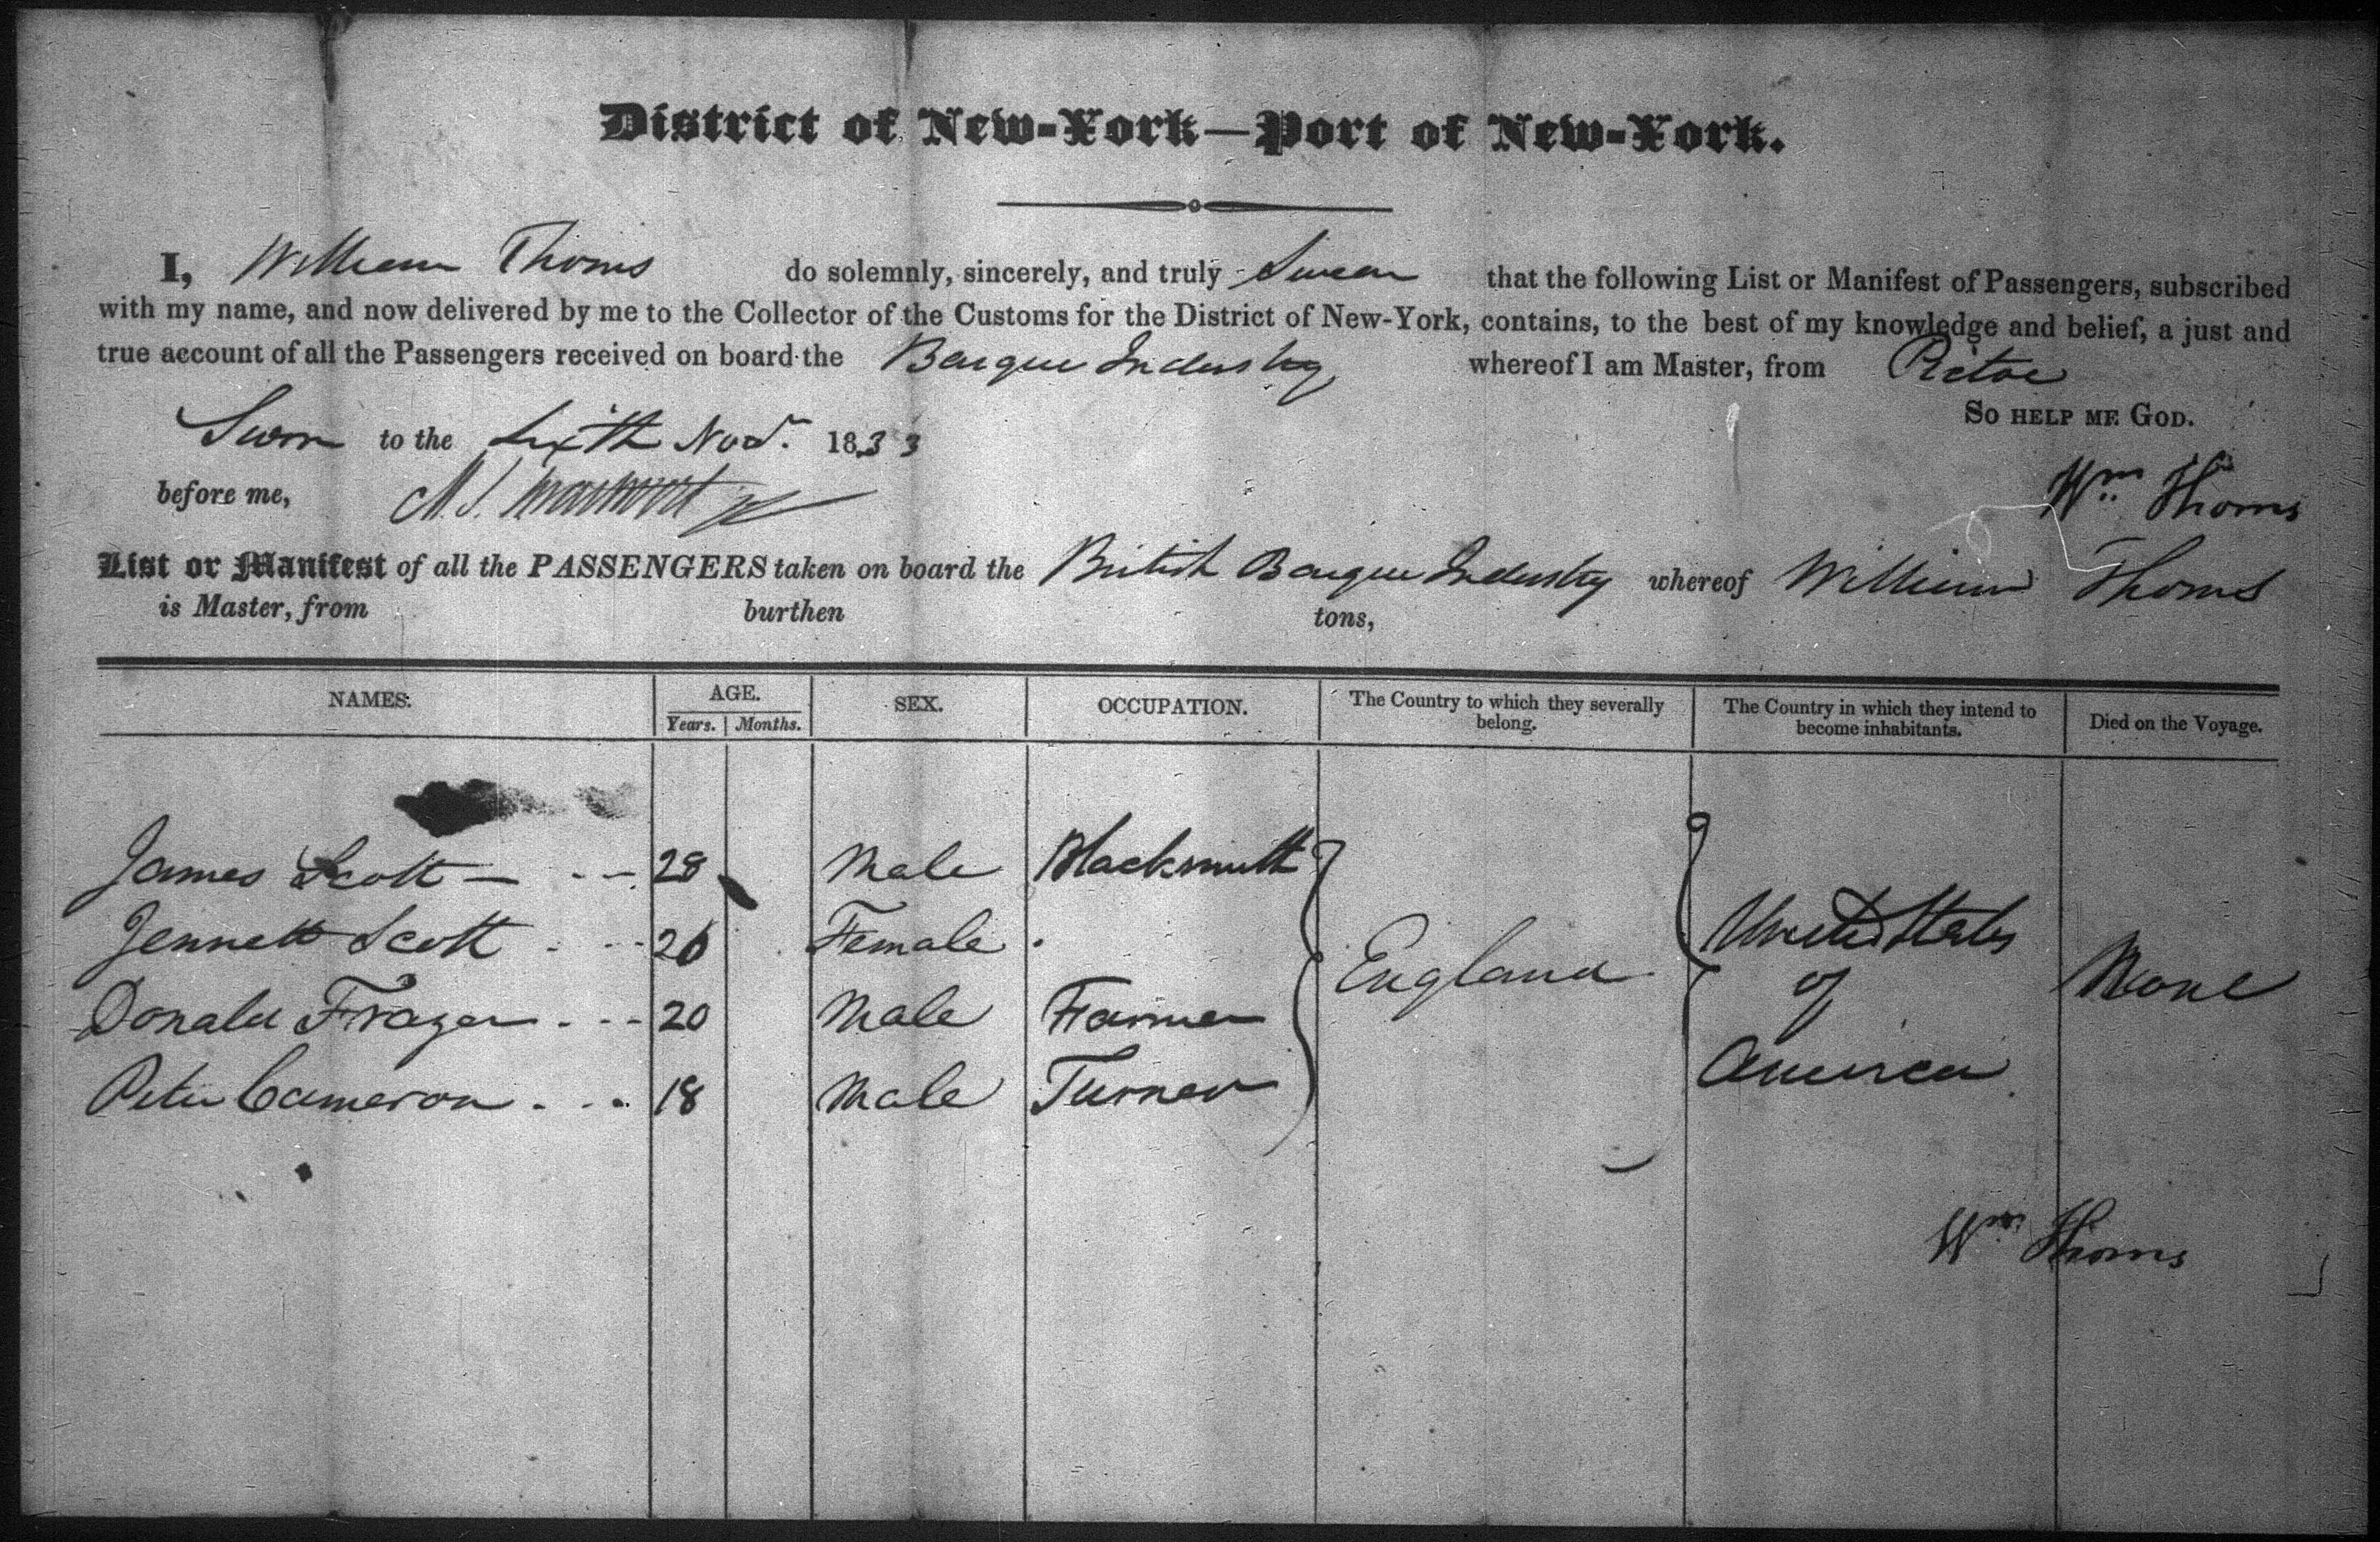 District of New-York—Port of New-York.
I, William Thoms do solemnly, sincerely, and truly Swear that the following List or Manifest of Passengers, subscribed
with my name, and now delivered by me to the Collector of the Customs for the District of New-York, contains, to the best of my knowledge and belief, a just and
true account of all the Passengers received on board the Barque Industry whereof I am Master, from Pictoe
So help me God.
Sworn to the Sixth Novr. 1833
Wm Thoms
before me,
List or Manifest of all the PASSENGERS taken on board the British Barque Industry whereof William Thoms
is Master, from burthen tons,
NAMES. AGE. SEX. OCCUPATION. The Country to which they severally belong. The Country in which they intend to become inhabitants. Died on the Voyage.
Years. Months.
James Scott — - - 28 Male Blacksmith
Jennett Scott - - 26 Female
Donald Frazer - - - 20 Male Farmer
Peter Cameron - - - 18 Male Turner
England
United States
of
America
None
Wm Thoms